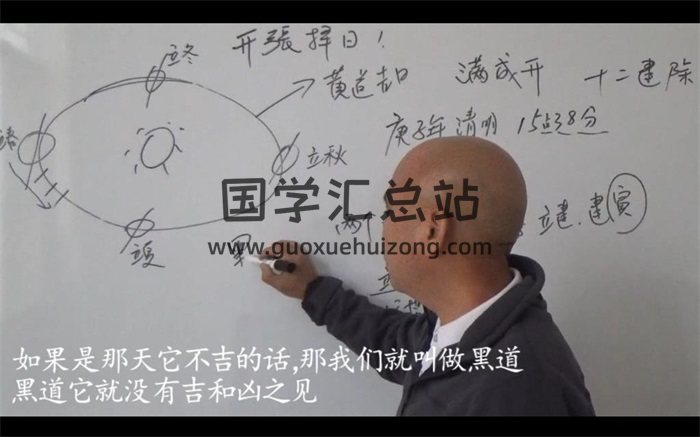 開張擇日!
立冬
黄道吉日 满成开 十二建除
庚子年 清明 15点38分
立秋
立夏
立建,建寅
国学汇总站
www.guoxuehuizong.com
如果是那天它不吉的话,那我们就叫做黑道
黑道它就没有吉和凶之见